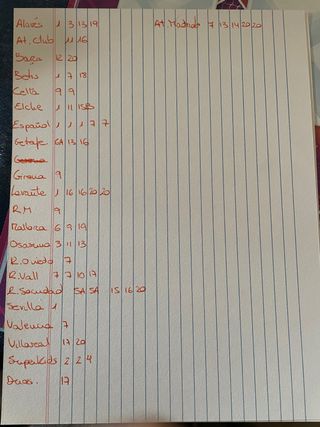 Alavés 1 3 13 19 At. Madrid 7 13 14 20 20
At. Club 11 16
Barça 12 20
Betis 1 7 18
Celta 9 9
Elche 1 11 15B
Español 1 1 1 7 7
Getafe 6A 13 16
Girona 9
Levante 1 16 16 20 20
R.M 9
Mallorca 6 9 19
Osasuna 3 11 13
R. Oviedo 7
R. Vall 7 7 10 17
R. Sociedad 5A 5A 15 16 20
Sevilla 1
Valencia 7
Villareal 17 20
Superkids 2 2 4
17